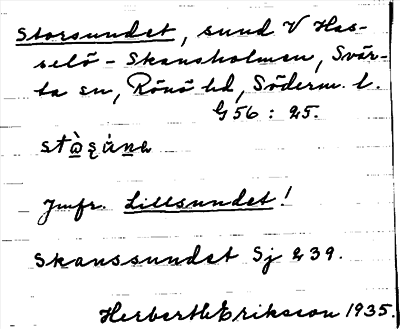 Storsundet, sund V Has-
selö - Skansholmen, Svär-
ta sn, Rönö hd, Söderm. l.
G 56 : 25.
Jmfr. Lillsundet!
Skanssundet Sj 239.
Herbert Eriksson 1935.